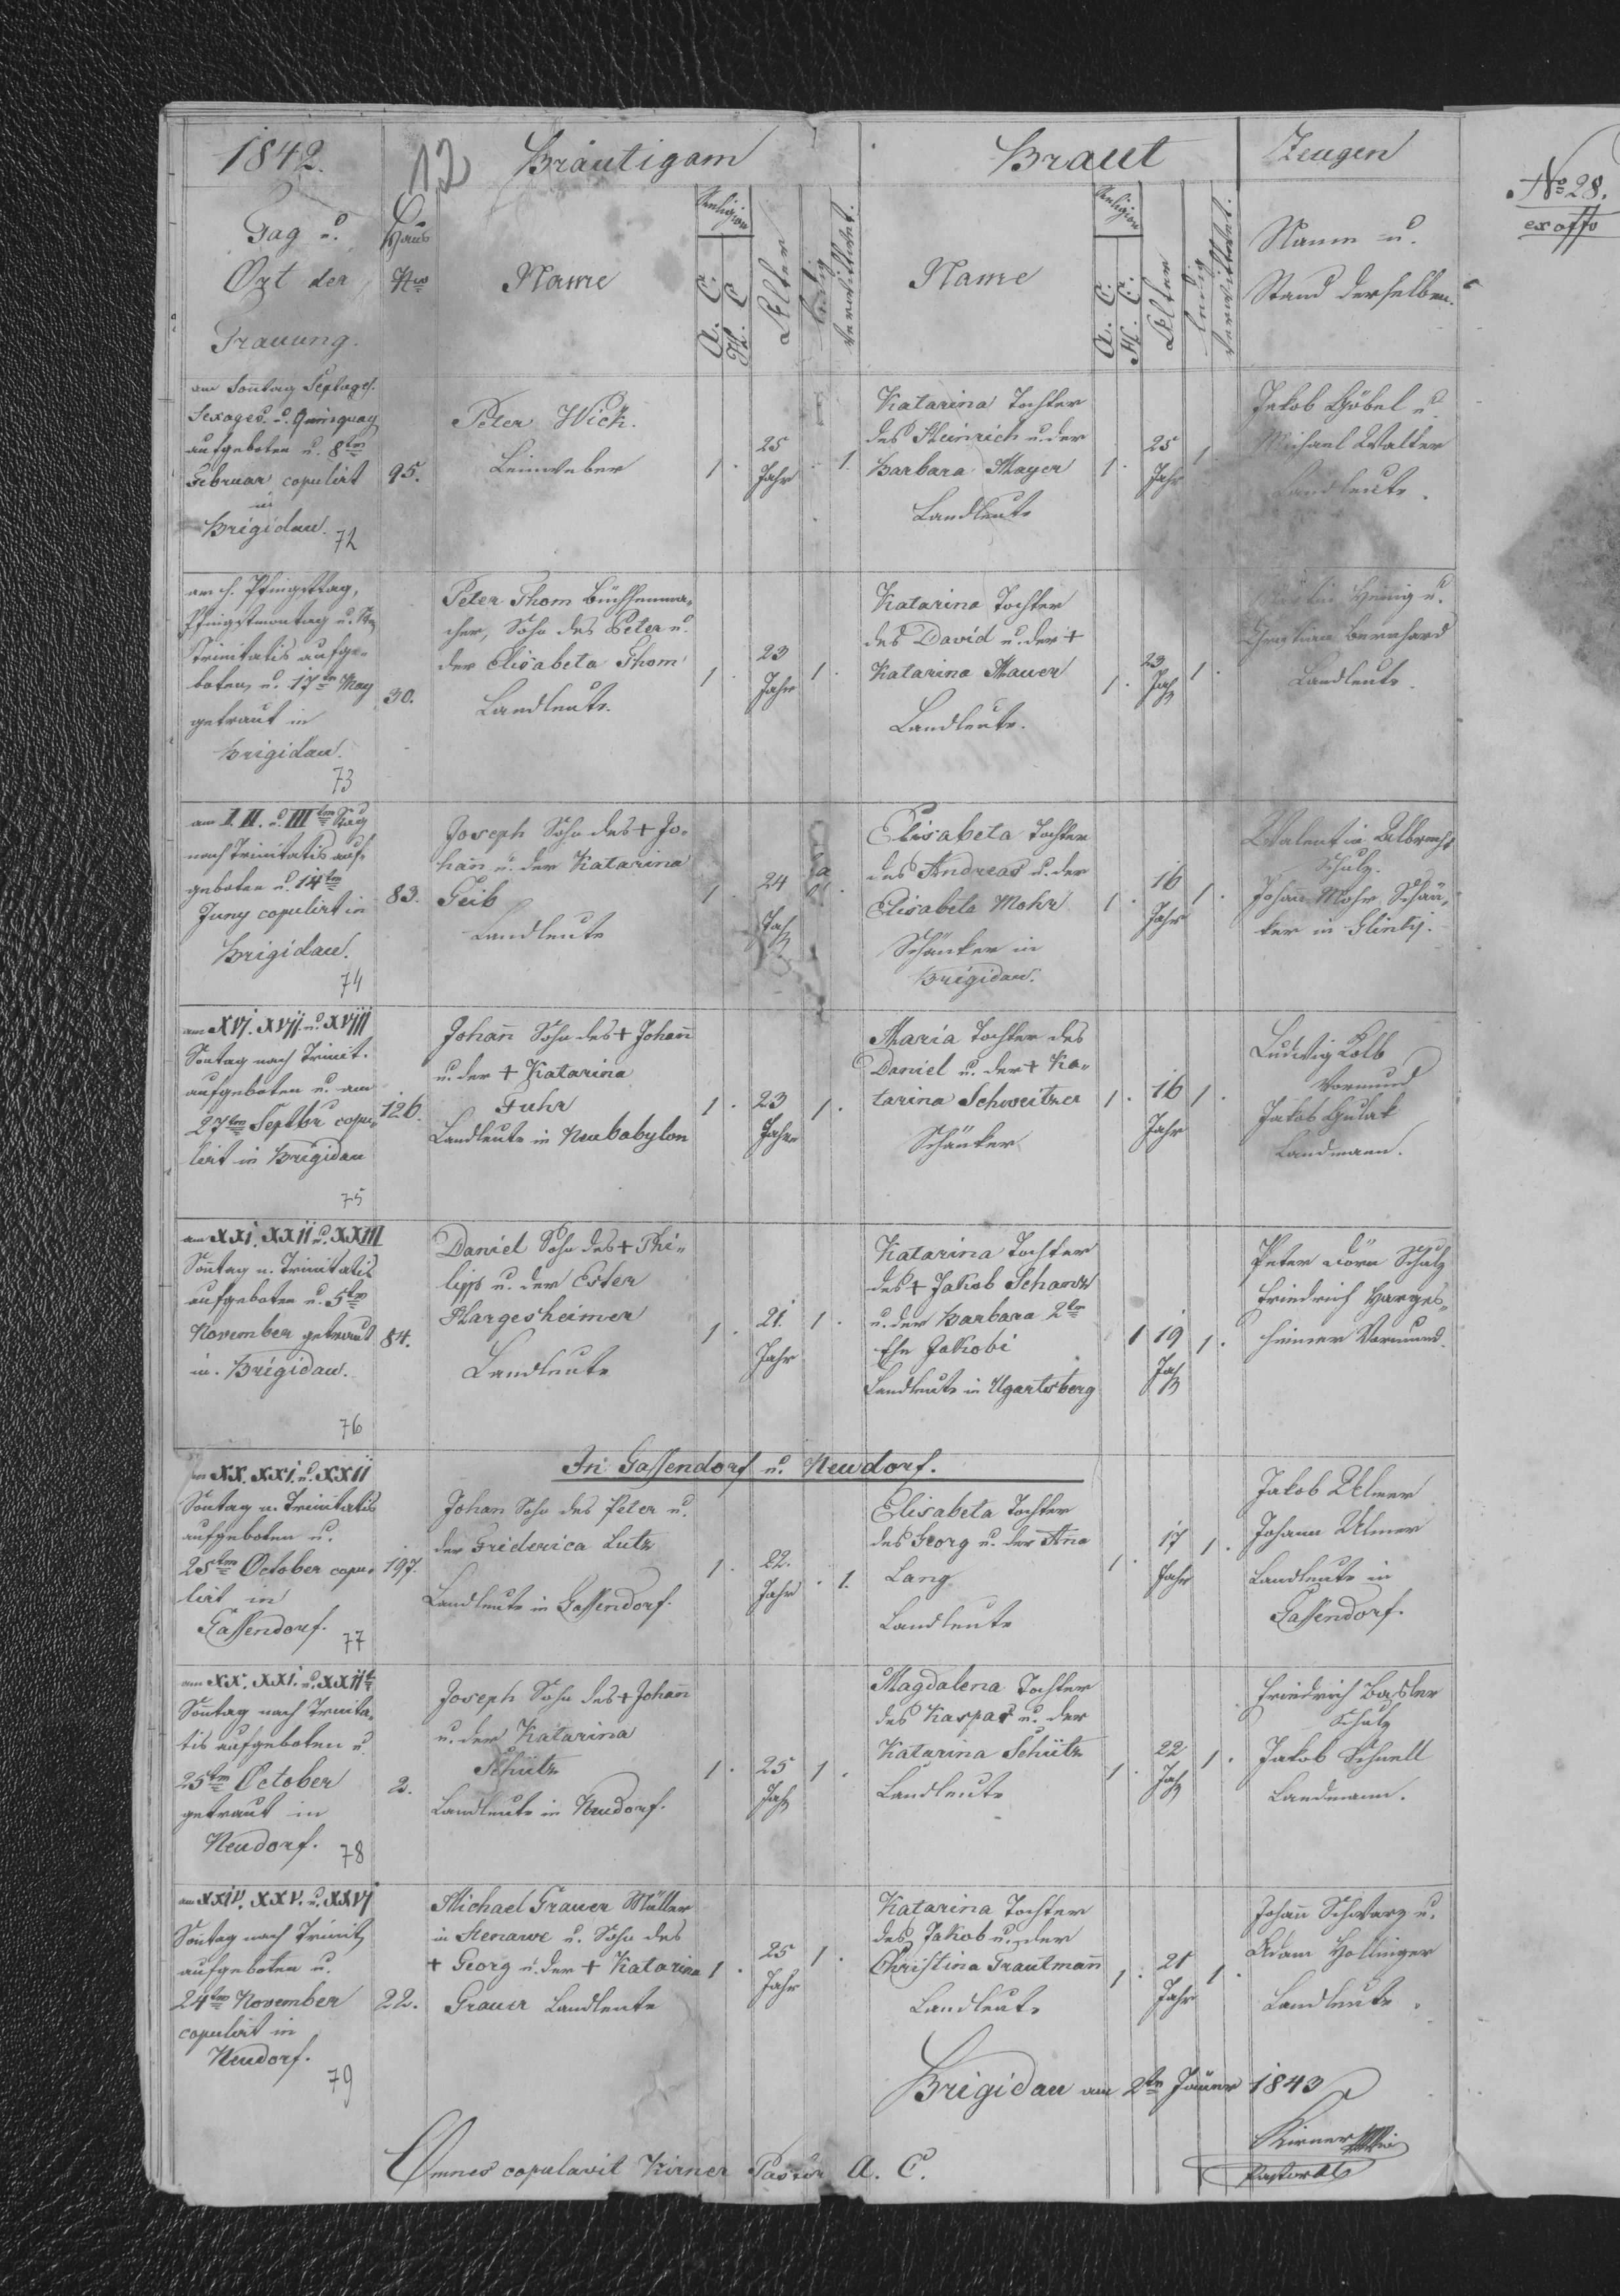 1842.
12
Bräutigam
Braut
Zeugen
Tag u.
Ort der
Trauung.
Haus
Nro
Name
Religion
A. C.
H. C.
Alter
ledig
verwittwet.
Name
Religion
A. C.
H. C.
Alter
ledig
verwittwet.
Namen u.
Stand derselben.
No 28.
ex offo
am Sontag Septages.
Sexages. u. Quinquag
aufgeboten u. 8ten
Februar copulirt
in
Brigidau.
72
95.
Peter Wick.
Leinweber
1.
25
Jahr
1.
Katarina Tochter
des Heinrich u. der
Barbara Mayer
Landleute
1.
25
Jahr
1
Jakob Göbel u.
Michael Walter
Landleute.
am h. Pfingsttag,
Pfingstmontag u.
Trinitatis aufge-
boten, u. 17ten May
getraut in
Brigidau.
73
30.
Peter Thom Büchsenma-
cher, Sohn des Peter u.
der Elisabeta Thom
Landleute.
1.
23
Jahr
1.
Katarina Tochter
des David u. der +
Katarina Mauer
Landleute.
1.
23
Jahr
1.
Hennig u.
Christian Bernhard
Landleute.
am I. II. u. IIIten Stag
nach Trinitatis auf-
geboten u. 14ten
Juny copulirt in
Brigidau.
74
83.
Joseph Sohn des + Jo-
hann u. der Katarina
Geib
Landleute
1.
24
Jahr
Elisabeta Tochter
des Andreas u. der
Elisabeta Mohr
Schänker in
Brigidau.
1.
16
Jahr
1.
Valentin Albrecht
Schulz.
Johann Mohr Schän-
ker in
am XVI. XVII. u. XVIII
Sontag nach Trinit.
aufgeboten u. am
27ten Septbr copu-
lirt in Brigidau
75
126.
Johann Sohn des + Johann
u. der + Katarina
Fuhr
Landleute in Neubabylon
1.
23
Jahr
1.
Maria Tochter des
Daniel u. der + Ka-
tarina Schweitzer
Schänker
1.
16
Jahr
1.
Ludwig Kolb
Vormund
Jakob Gulak
Landmann.
am XXI. XXII u. XXIII
Sontag n. Trinitatis
aufgeboten u. 5ten
November getraut
in Brigidau.
76
84.
Daniel Sohn des + Phi-
lipp u. der Ester
Hargesheimer
Landleute
1.
21.
Jahr
1.
Katarina Tochter
des + Jakob Schanz
u. der Barbara 2ten
Ehe Jakobi
Landleute in Ugartsberg
1
19
Jahr
1.
Peter Dörn Schulz
Friedrich Harges-
heimer Vormund.
In Gassendorf u. Neudorf.
am XX. XXI. u. XXII
Sontag n. Trinitatis
aufgeboten u.
25ten October copu-
lirt in
Gassendorf.
77
197.
Johan Sohn des Peter u.
der Friderica Lutz
Landleute in Gassendorf.
1.
22.
Jahr
1.
Elisabeta Tochter
des Georg u. der Ana
Lang
Landleute
1.
17
Jahr
1.
Jakob Ulmer
Johann Ulmer
Landleute in
Gassendorf.
am XX. XXI. u. XXIIt
Sontag nach Trinita-
tis aufgeboten u.
25ten October
getraut in
Neudorf.
78
2.
Joseph Sohn des + Johann
u. der Katarina
Schütz
Landleute in Neudorf.
1.
25
Jahr
1.
Magdalena Tochter
des Kaspar u. der
Katarina Schütz
Landleute
1.
22
Jahr
1.
Friedrich Basler
Schulz
Jakob Schnell
Landmann.
am XXIV. XXV. u. XXVI
Sontag nach Trinit
aufgeboten u.
24ten November
copulirt in
Neudorf.
79
22.
Michael Grauer Müller
in u. Sohn des
+ Georg u. der + Katarina
Grauer Landleute
1.
25
Jahr
1.
Katarina Tochter
des Jakob u. der
Christina Trautmann
Landleute
1.
21
Jahr
1.
Johann Schwarz u.
Adam Hollinger
Landleute.
Brigidau am 2ten Jänner 1843
Kirner
Pastor
Omnes copulavit Kirner Pastor A. C.